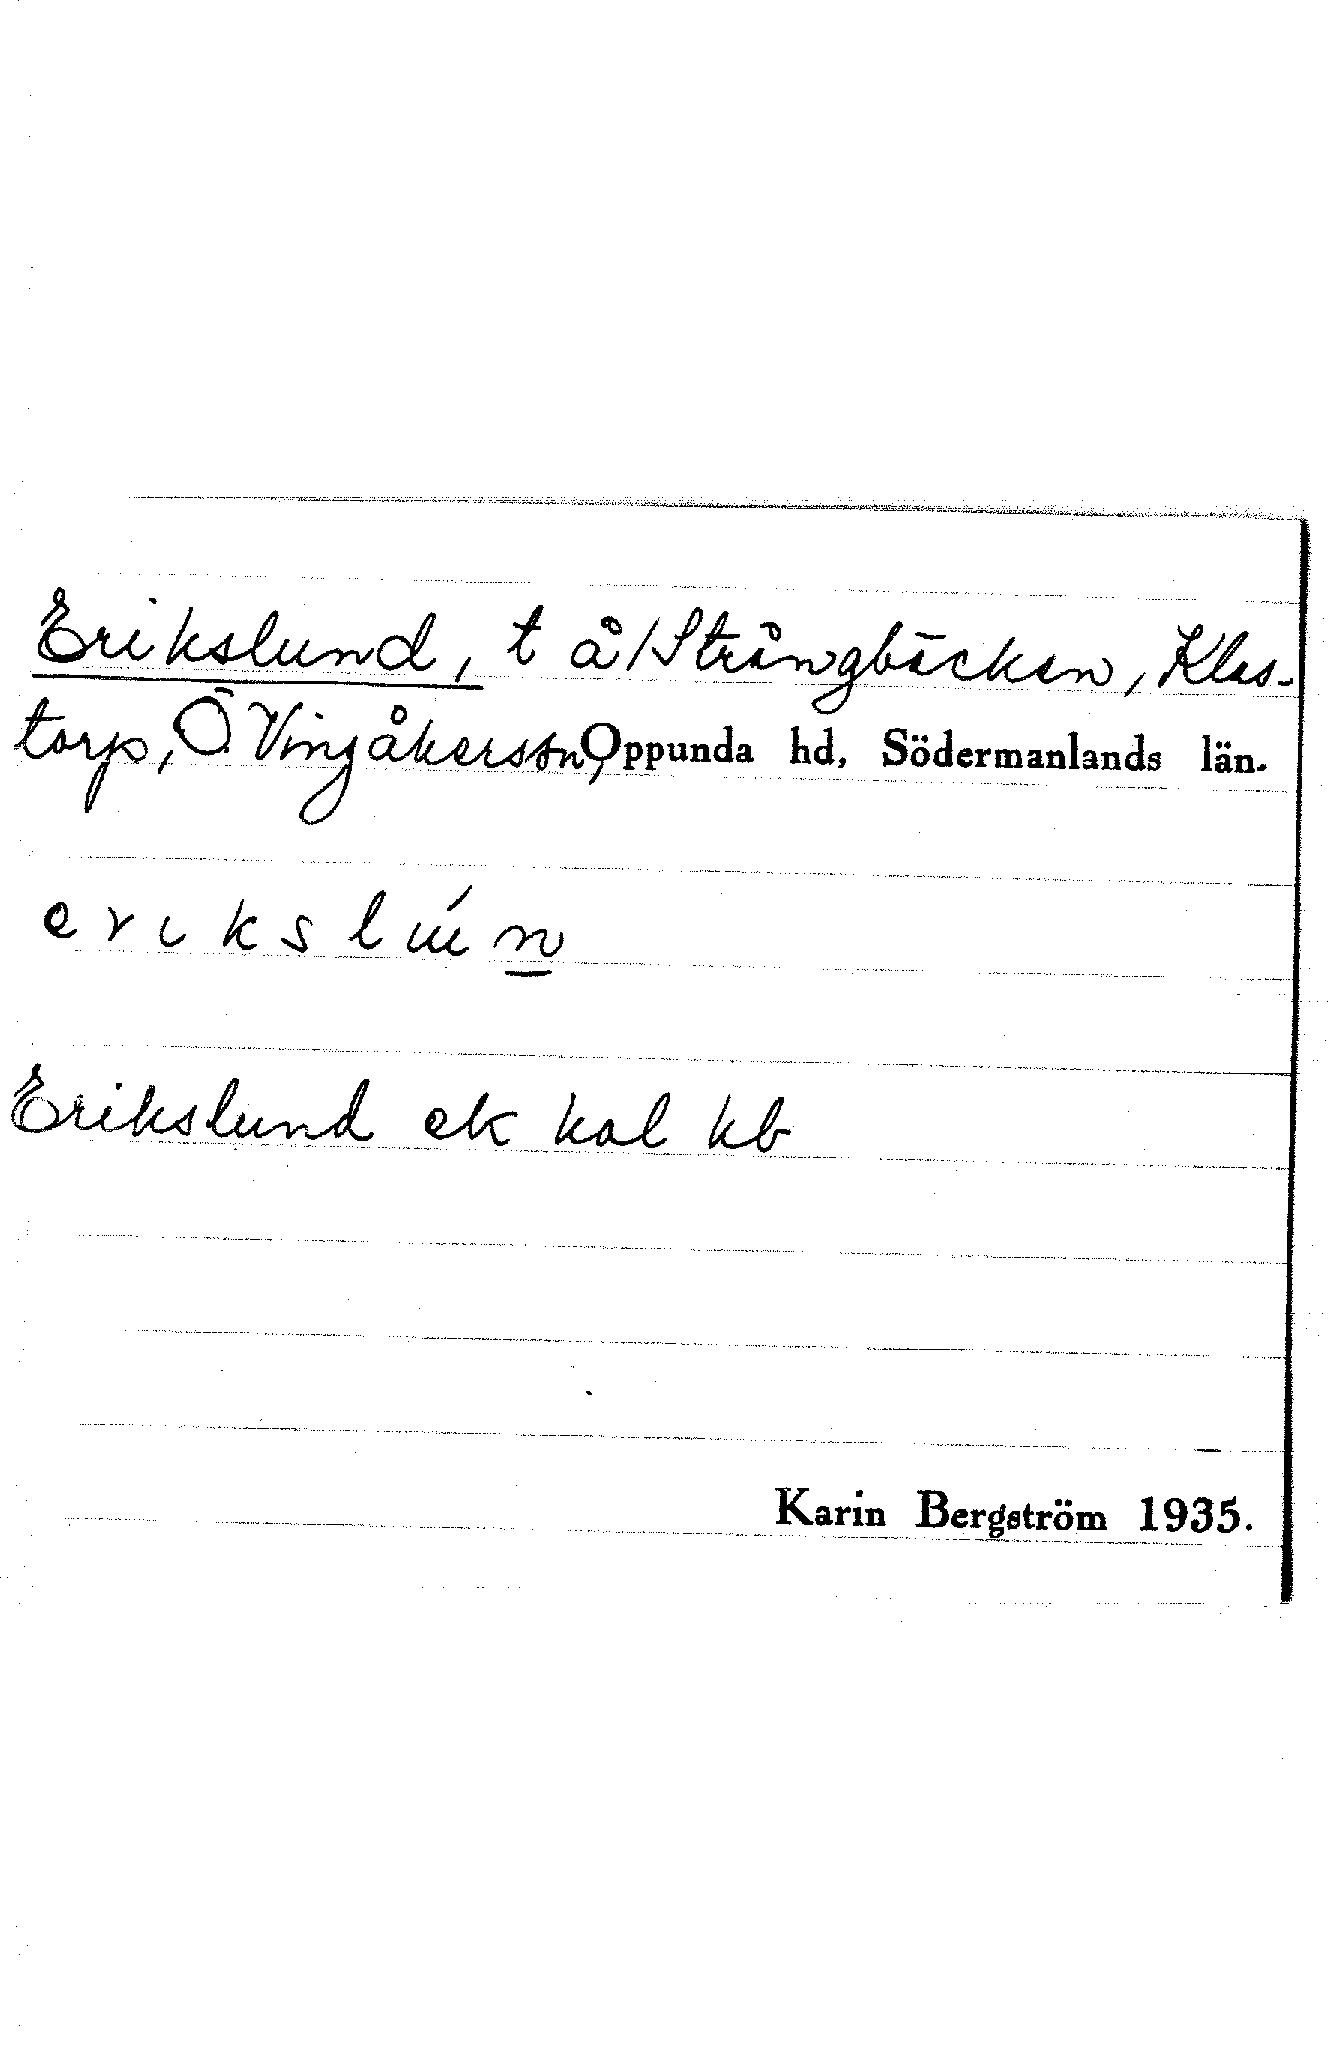 Erikslund, t å/Strångbäcken, Klas-
torp, Ö Vingåkers sn, Oppunda hd, Södermanlands län.
erikslún
Erikslund ek kal kb
Karin Bergström 1935.